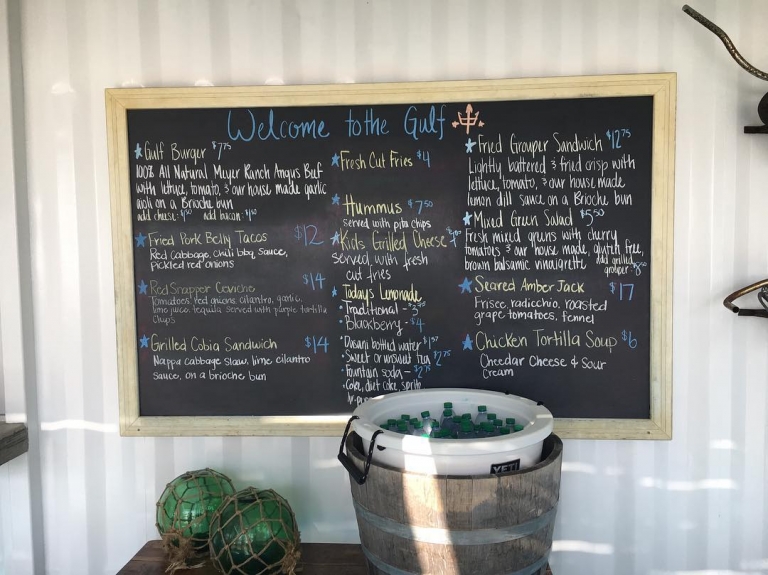 Welcome to the Gulf
Gulf Burger $7.75
100% All Natural Meyer Ranch Angus Beef
with lettuce, tomato, & our house made garlic
aioli on a Brioche bun
add cheese $.50 add bacon $1.50
Fried Pork Belly Tacos $12
Red cabbage, chili bbq sauce,
pickled red onions
Red Snapper Ceviche $14
Tomatoes, red onions, cilantro, garlic,
lime juice, tequila served with purple tortilla
chips
Grilled Cobia Sandwich $14
Nappa cabbage slaw, lime cilantro
sauce, on a brioche bun
Fresh Cut Fries $4
Hummus $7.50
served with pita chips
Kids Grilled Cheese
served with fresh
cut fries
Today's Lemonade
- Traditional -
- Blackberry - $4
Dasani bottled water
Sweet or unsweet tea $2.75
Fountain soda -
Coke, diet coke, sprite
Fried Grouper Sandwich $12.75
Lightly battered & fried crisp with
lettuce, tomato, & our house made
lemon dill sauce on a Brioche bun
Mixed Green Salad $5.50
Fresh mixed greens with cherry
tomatoes & our house made, gluten free,
brown balsamic vinaigrette add grilled
grouper
Seared Amber Jack $17
Frisee, radicchio, roasted
grape tomatoes, fennel
Chicken Tortilla Soup $6
Cheedar Cheese & Sour
Cream
YETI